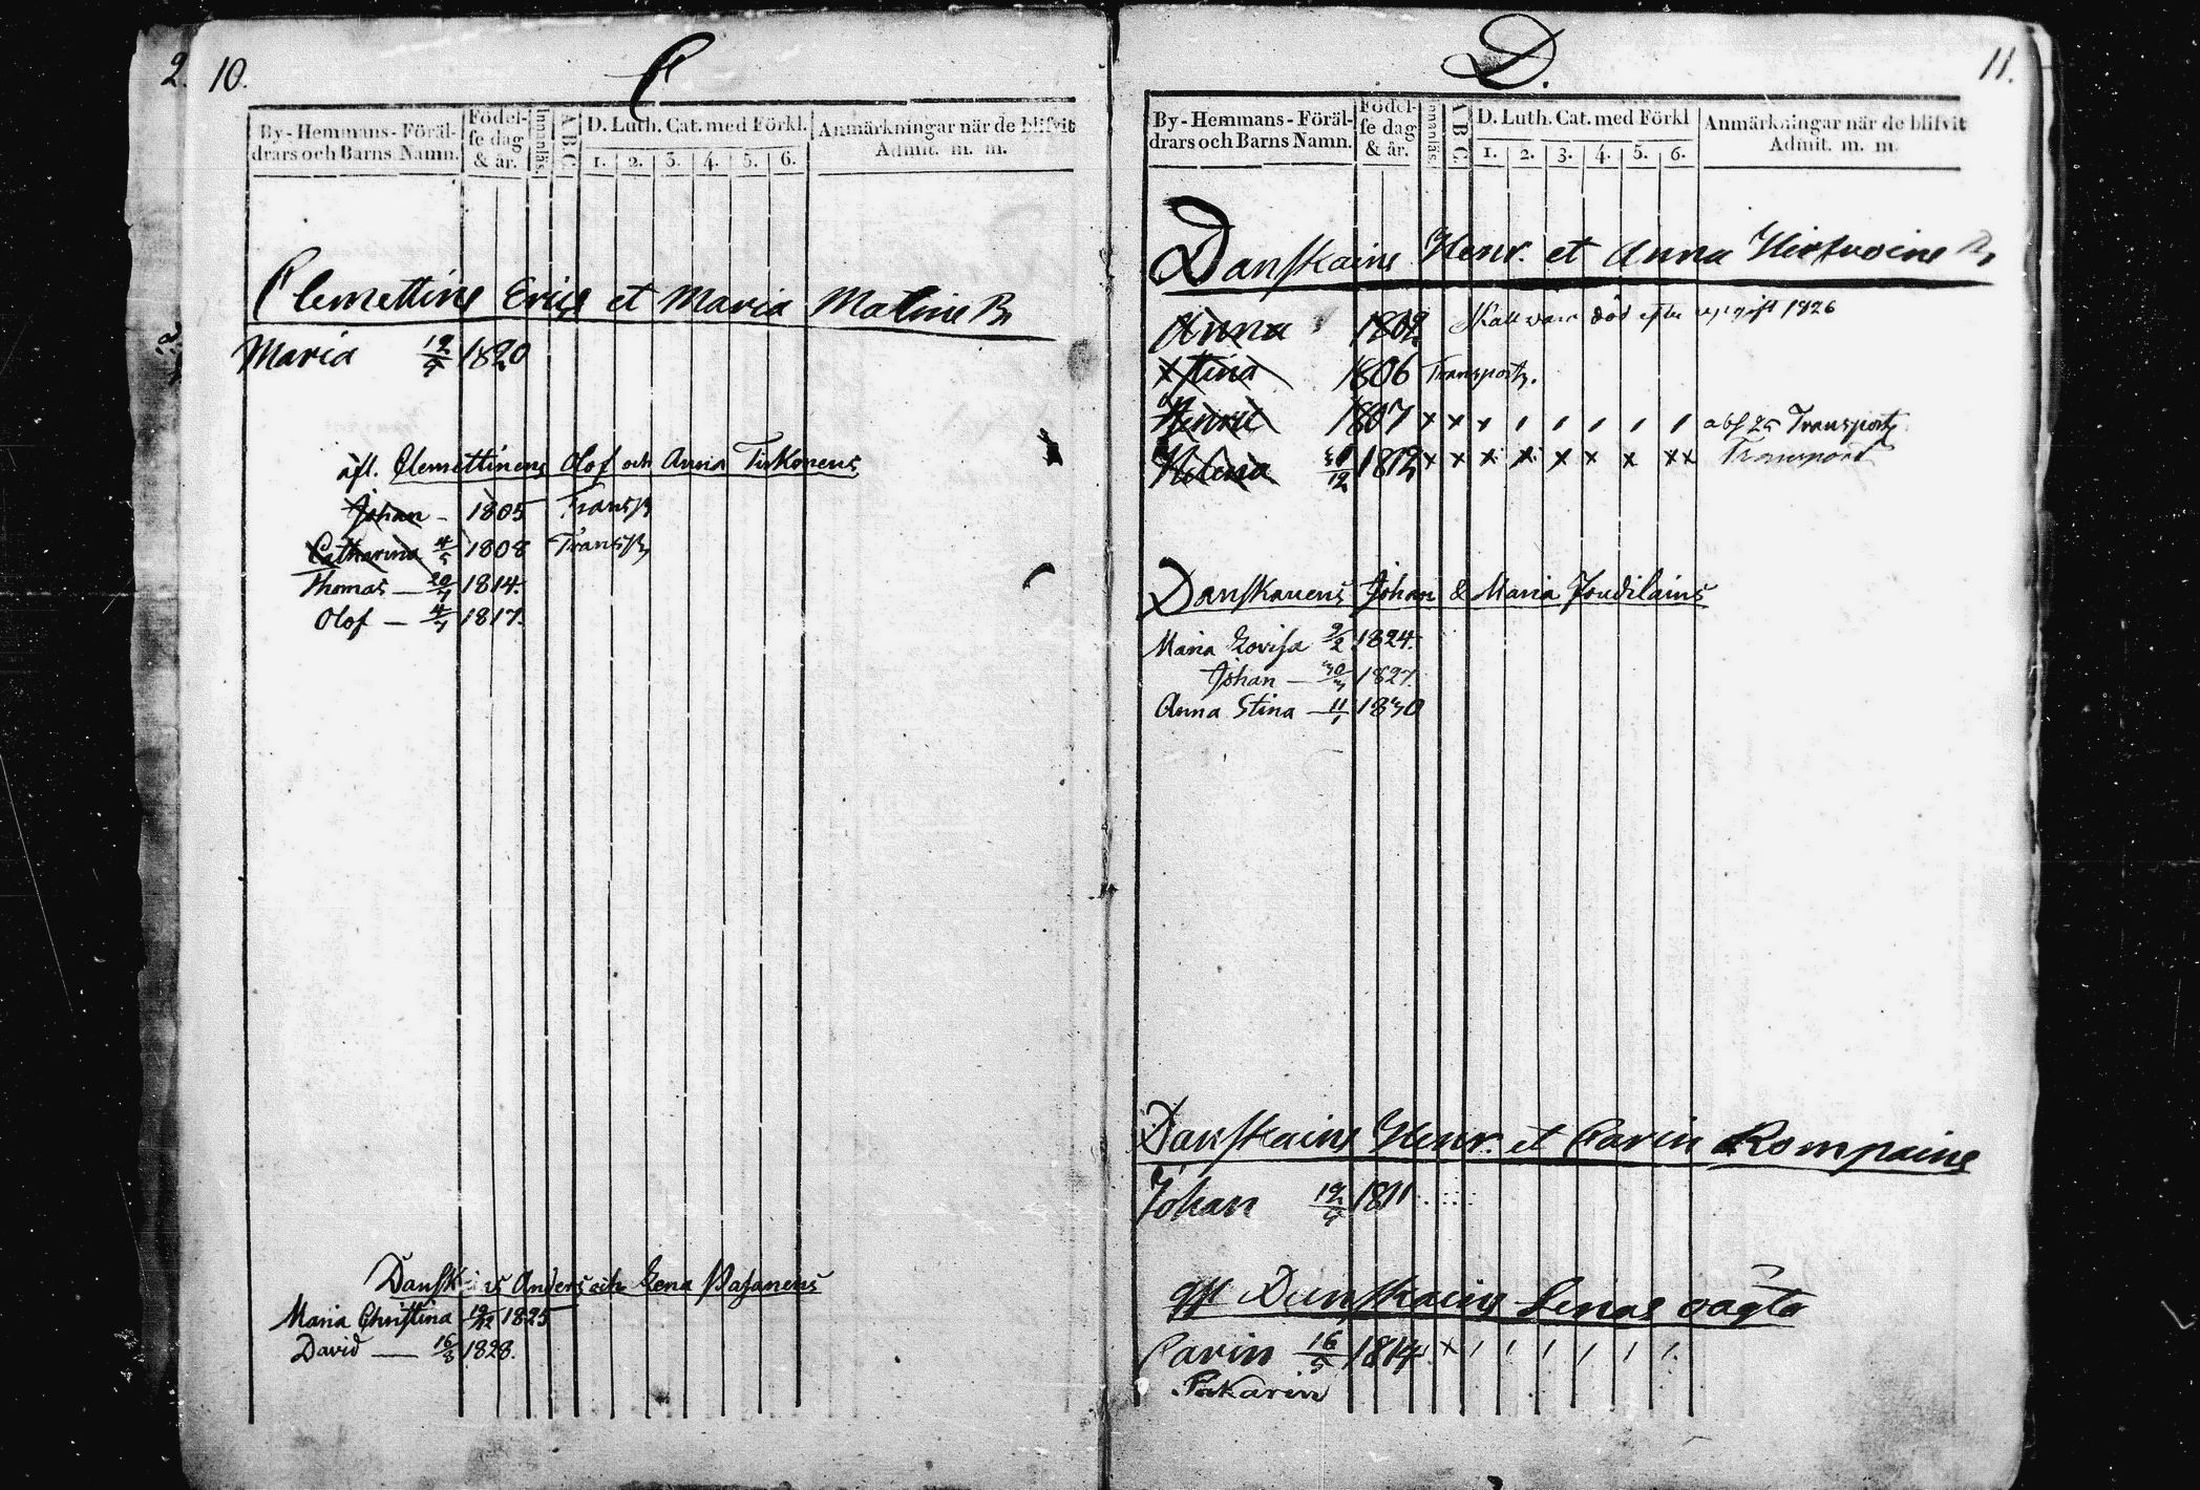 2.
10.
C
By-Hemmans-Föräl-
drars och Barns Namn.
Födel-
se dag
& år.
Innanläs.
ABC
D. Luth. Cat. med Förkl.
1. 2. 3. 4. 5. 6.
Anmärkningar når de blifvit
Admit. m. m.
Clemettins Erics et Maria Matins Bn
Maria 1820
afl. Clemettinens Olof och Anna Tirkonens
Johan - 1805 Transp
Catharina 4/5 1808 Transp
Thomas — 1814.
Olof — 1817.
Anders och Lena Pasanens
Maria Christina 19/12 1825
David — 16/8 1828.
11.
D.
By-Hemmans-Föräl-
drars och Barns Namn.
Födel-
se dag
& år.
Innanläs.
ABC
D. Luth. Cat. med Förkl
1. 2. 3. 4. 5. 6.
Anmärkningar når de blifvit
Admit. m. m.
Danskains Henr. et Anna
Anna 1802 Skall vara död efter uppgift 1826
Stina 1806 Transport.
Henric 1807 x x Transport
Helena 1812 x x x x x x x x x Transport
Danskanens Johan & Maria
Maria Lovisa 9/2 1824.
Johan — 30/3 1827.
Anna Stina — 11/1 1830
Danskains Henr. et Carin Rompains
Johan 1811
Danskains Lenas oägta
Carin 16/5 1814 x